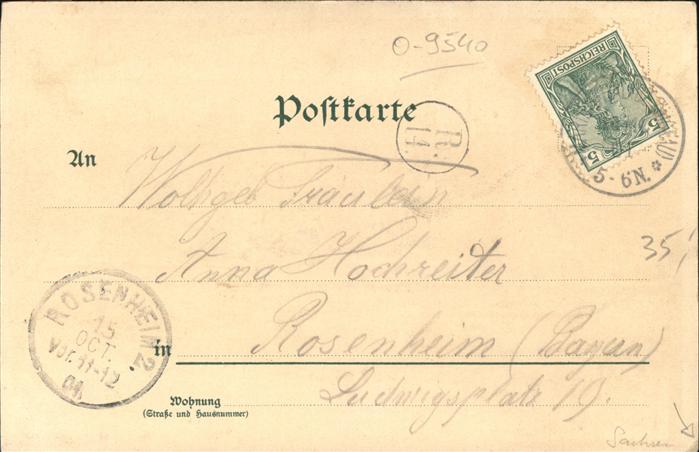 O-9540
Postkarte
REICHSPOST
5 5
5-6N. *
R.
14.
An
Wohlgeb Fräulein
Anna Hochreiter
35,
ROSENHEIM 2.
15
OCT.
Vor. 11-12
01
in Rosenheim (Bayern)
Wohnung
(Straße und Hausnummer)
Ludwigsplatz 19.
Sachsen